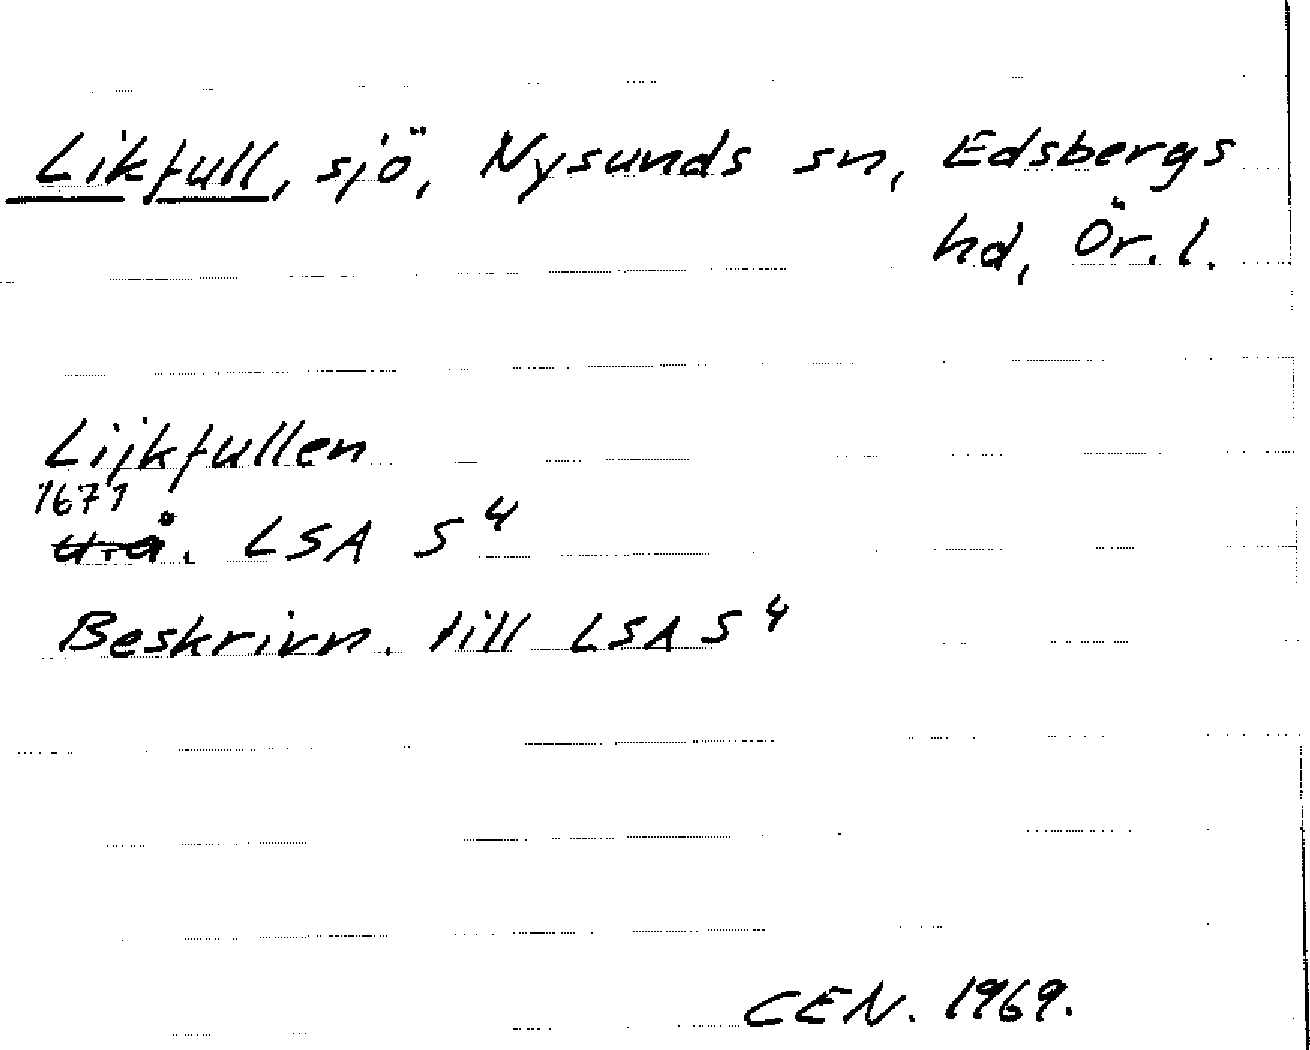 Likfull, sjö, Nysunds sn, Edsbergs
hd, Ör. l.
Lijkfullen
1671
u.å. LSA S4
Beskrivn. till LSA S4
CEN. 1969.